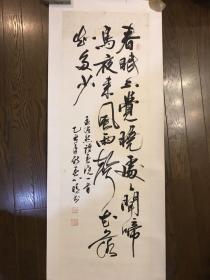 春眠不覺曉處々聞啼
鳥夜来風雨聲花落
知多少
孟浩然詩春曉一首
乙亥年
书